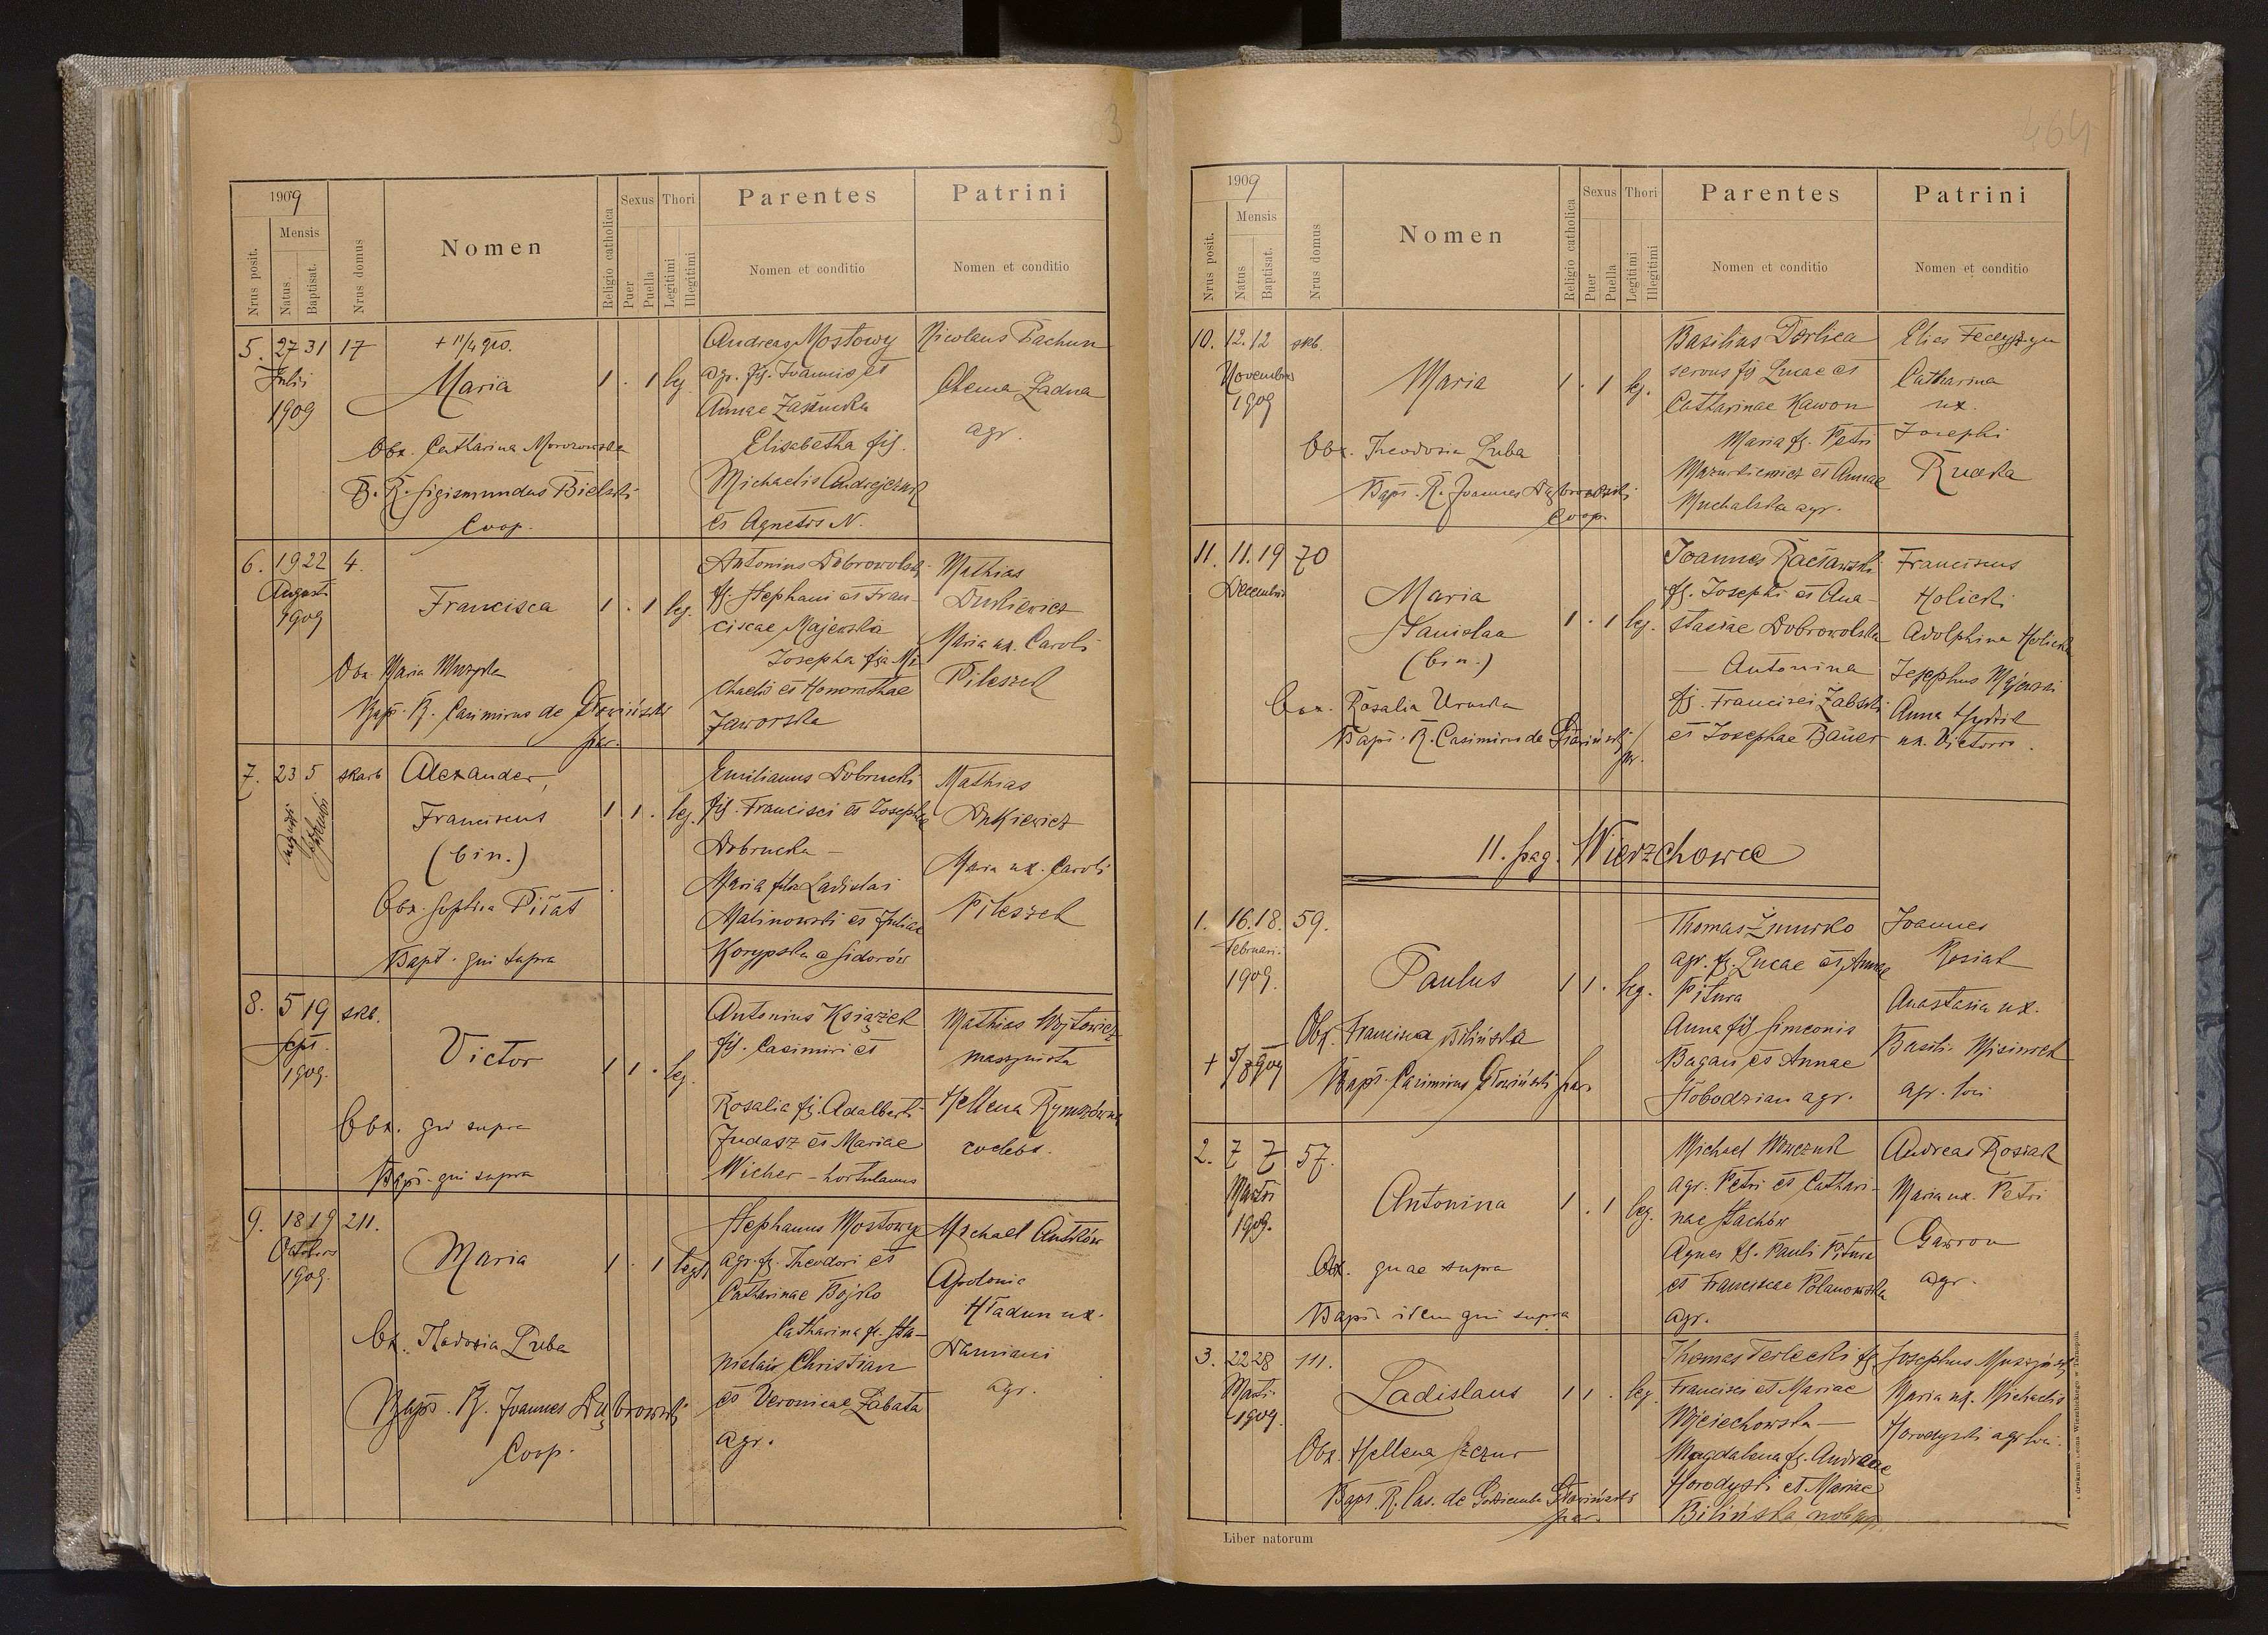 1909
Nrus posit.
Mensis
Natus.
Baptisat.
Nrus domus
Nomen
Religio catholica
Sexus
Puer
Puella
Thori
Legitimi
Illegitimi
Parentes
Nomen et conditio
Patrini
Nomen et conditio
5. 27 31 17
Julii
1909
Maria
1 . 1 leg
Obx. Catharina Morozowska
B. R. Sigismundus Bielski
Coop.
Andreas Mostowy
agr. fil. Joannis et
Annae
Elisabetha fil.
Michaelis Andrejczuk
et Agnetis N.
Nicolaus Pachun
Ładna
agr.
6. 19 22 4.
Augusti
1909
Francisca
1 . 1 leg.
Obx Maria Muzyka
Bapt. R. Casimirus de Głowiński
par.
Antonius Dobrowolski
fj. Stephani et Fran-
ciscae Majewska
Josepha fja Mi-
chaelis et Honorathae
Jaworska
Mathias
Dutkiewicz
Maria ux. Caroli
Pileszek
7. 23 5 skarb
Augusti
Septembri
Alexander,
Franciscus
(bin.)
1 1 . leg.
Obx. Sophia Pirat
Bapt. qui supra
Emilianus Dobrucki
fij. Francisci et Josephae
Dobrucka –
Maria filia Ladislai
Malinowski et Juliae
Korypska a Sidorów
Mathias
Dutkiewicz
Maria ux. Caroli
Pileszek
8. 5 19 skb.
Sept.
1909.
Victor
1 1 . leg.
Obx. qui supra
Bapt. qui supra
Antonius Książek
fij. Casimiri et
Rosalia fj. Adalberti
Judasz et Mariae
Wicher – hortulanus
Mathias Wojtowicz
maszynista
Hellena Rymszówna
coelebs.
9. 18 19 211.
Octobris
1909.
Maria
1 . 1
Obx. Theodosia Luba
Bapt. R. Joannes Dąbrowski
Coop.
Stephanus Mostowy
agr. fj. Theodori et
Catharinae Bojko
Catharina fj. Sta-
nislai Christian
et Veronicae Zabata
agr.
Michael Antków
Apolonia
Hładun ux.
Damiani
agr.
464
1909
Nrus posit.
Mensis
Natus
Baptisat.
Nrus domus
Nomen
Religio catholica
Sexus
Puer
Puella
Thori
Legitimi
Illegitimi
Parentes
Nomen et conditio
Patrini
Nomen et conditio
10. 12. 12 skb.
Novembris
1909
Maria
1 . 1 leg.
Obx. Theodosia Luba
Bapt. R. Joannes Dąbrowski
Coop.
Basilius Derlica
servus fij Lucae et
Catharinae Kawon
Maria fj. Petri
Mazurkiewicz et Annae
Muchalska agr.
Elias
Catharina
ux.
Josephi
Rucka
11. 11. 19 70
Decembris
Maria
Stanislaa
(bin.)
1 . 1 leg.
Obx. Rosalia
Bapt. R. Casimirus de Głowiński
par.
Joannes Racławski
fj. Josephi et Ana-
stasiae Dobrowolska
– Antonina
fj. Francisci Zabski
et Josephae Bauer
Franciscus
Holicki
Adolphina Holicka
Josephus Majewski
Anna
ux. Victoris.
11. pag. Wierzchowce
1. 16. 18. 59.
Februari.
1909.
Paulus
1 1 . leg.
Obx. Francisca Bilińska
+ 5/8 909
Bapt. Casimirus Głowiński par.
Thomas Żmurko
agr. fj. Lucae et Annae
Pitura
Anna fil Simeonis
Bagan et Annae
Słobodzian agr.
Joannes
Rosiak
Anastasia ux.
Basili Misiurek
agr. loci
2. 7 7 57.
Martii
1909.
Antonina
1 . 1 leg.
Obx. quae supra
Bapt. idem qui supra
Michael Wowczuk
agr. Petri et Cathari-
nae Stachów
Agnes fj. Pauli Pitura
et Franciscae Polanowska
agr.
Andreas Rosiak
Maria ux. Petri
Gawron
agr.
3. 22 28 111.
Marti
1909.
Ladislaus
1 1 . leg.
Obx. Hellena Szczur
Bapt. R. Cas. de Godziemba Głowiński
par.
Thomas Terlecki fj
Francisci et Mariae
Wojciechowska –
Magdalena fj. Andreae
Horodyski et Mariae
Bilińska
Josephus Muszyński
Maria ux. Michaelis
Horodyski agr loci.
Liber natorum